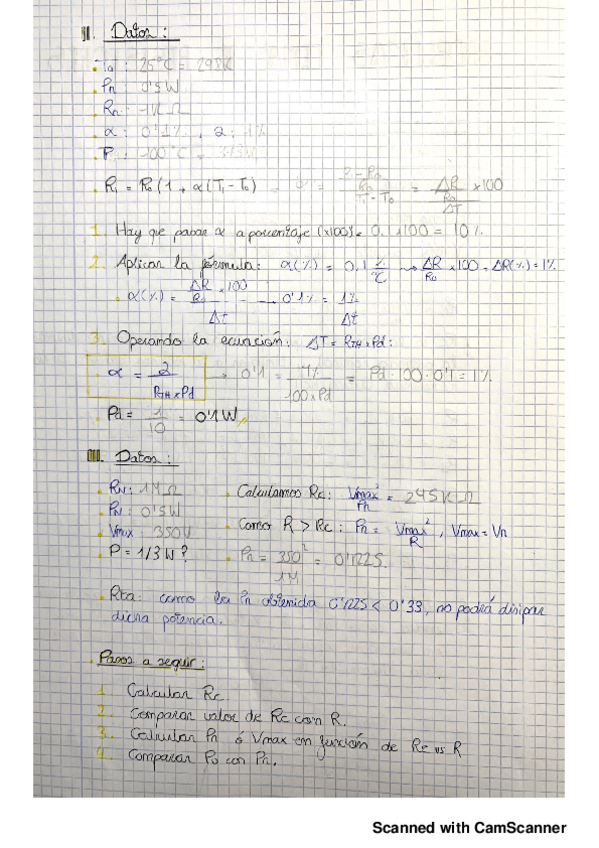 II. Datos:
To: 25°C = 298K
Pn: 0'5W
Rn: 1K Ω
α: 0'1%, 2: 1%
P: 100°C = 373K
R1 = Ro (1 + α(T1 - To) = ΔR/Ro/ΔT x100
1. Hay que pasar α a porcentaje (x100) = 0.1 x100 = 10%
2. Aplicar la fórmula: α(%) = 0.1 %/°C → ΔR/Ro x100 = ΔR(%) = 1%
α(%) = ΔR/Ro x100/Δt → 0'1% = 1%/Δt
3. Operando la ecuación: ΔT = RTH x Pd:
α = 2/RTH x Pd → 0'1 = 1%/100 x Pd = Pd · 100 · 0'1 = 1%
Pd = 1/10 = 0'1W
III. Datos:
RN: 1M Ω . Calculamos Rc: Vmax²/Pn = 245K Ω
PN: 0'5W
Vmax 350V . Como R > Rc: Pn = Vmax²/R, Vmax = Vn
P = 1/3W? . Pn = 350²/1M = 0'1225.
Rta: como la Pn obtenida 0'1225 < 0'33, no podrá disipar
dicha potencia.
Pasos a seguir:
1. Calcular Rc.
2. Comparar valor de Rc con R.
3. Calcular Pn ó Vmax en función de Rc vs R
4. Comparar Po con Pn.
Scanned with CamScanner